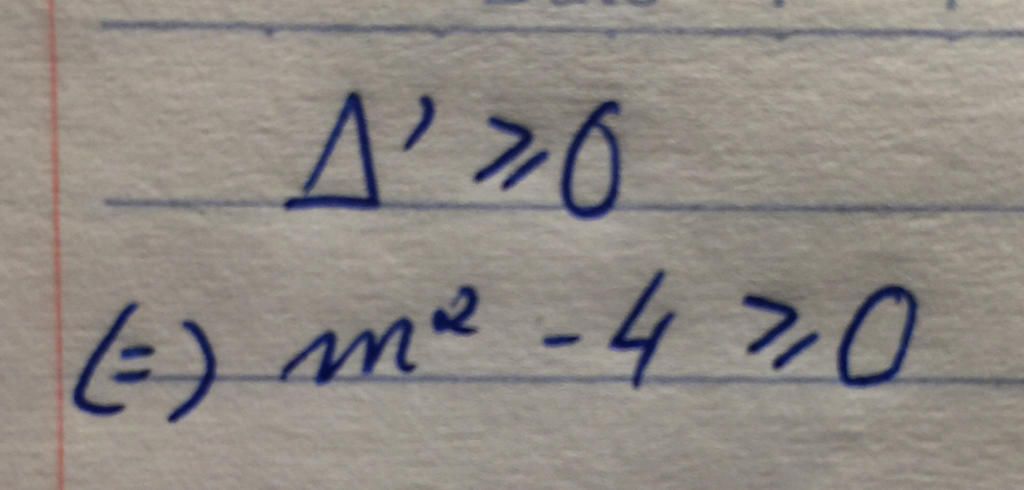 Δ' ⩾ 0
(=) m² - 4 ⩾ 0